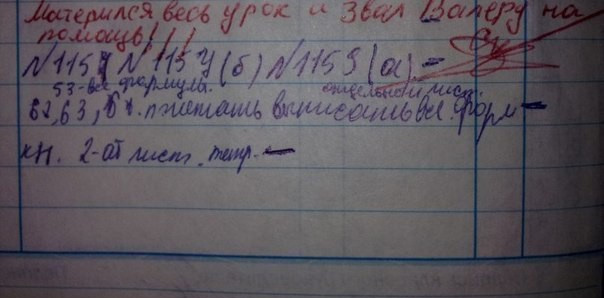 Матерился весь урок и звал Валеру на
помощь!!!
№1157 №1154(б) №1159(а)
53-все формулы. отдельный лист.
62,63, читать выписать все форм
кн. 2-ой лист. тетр.